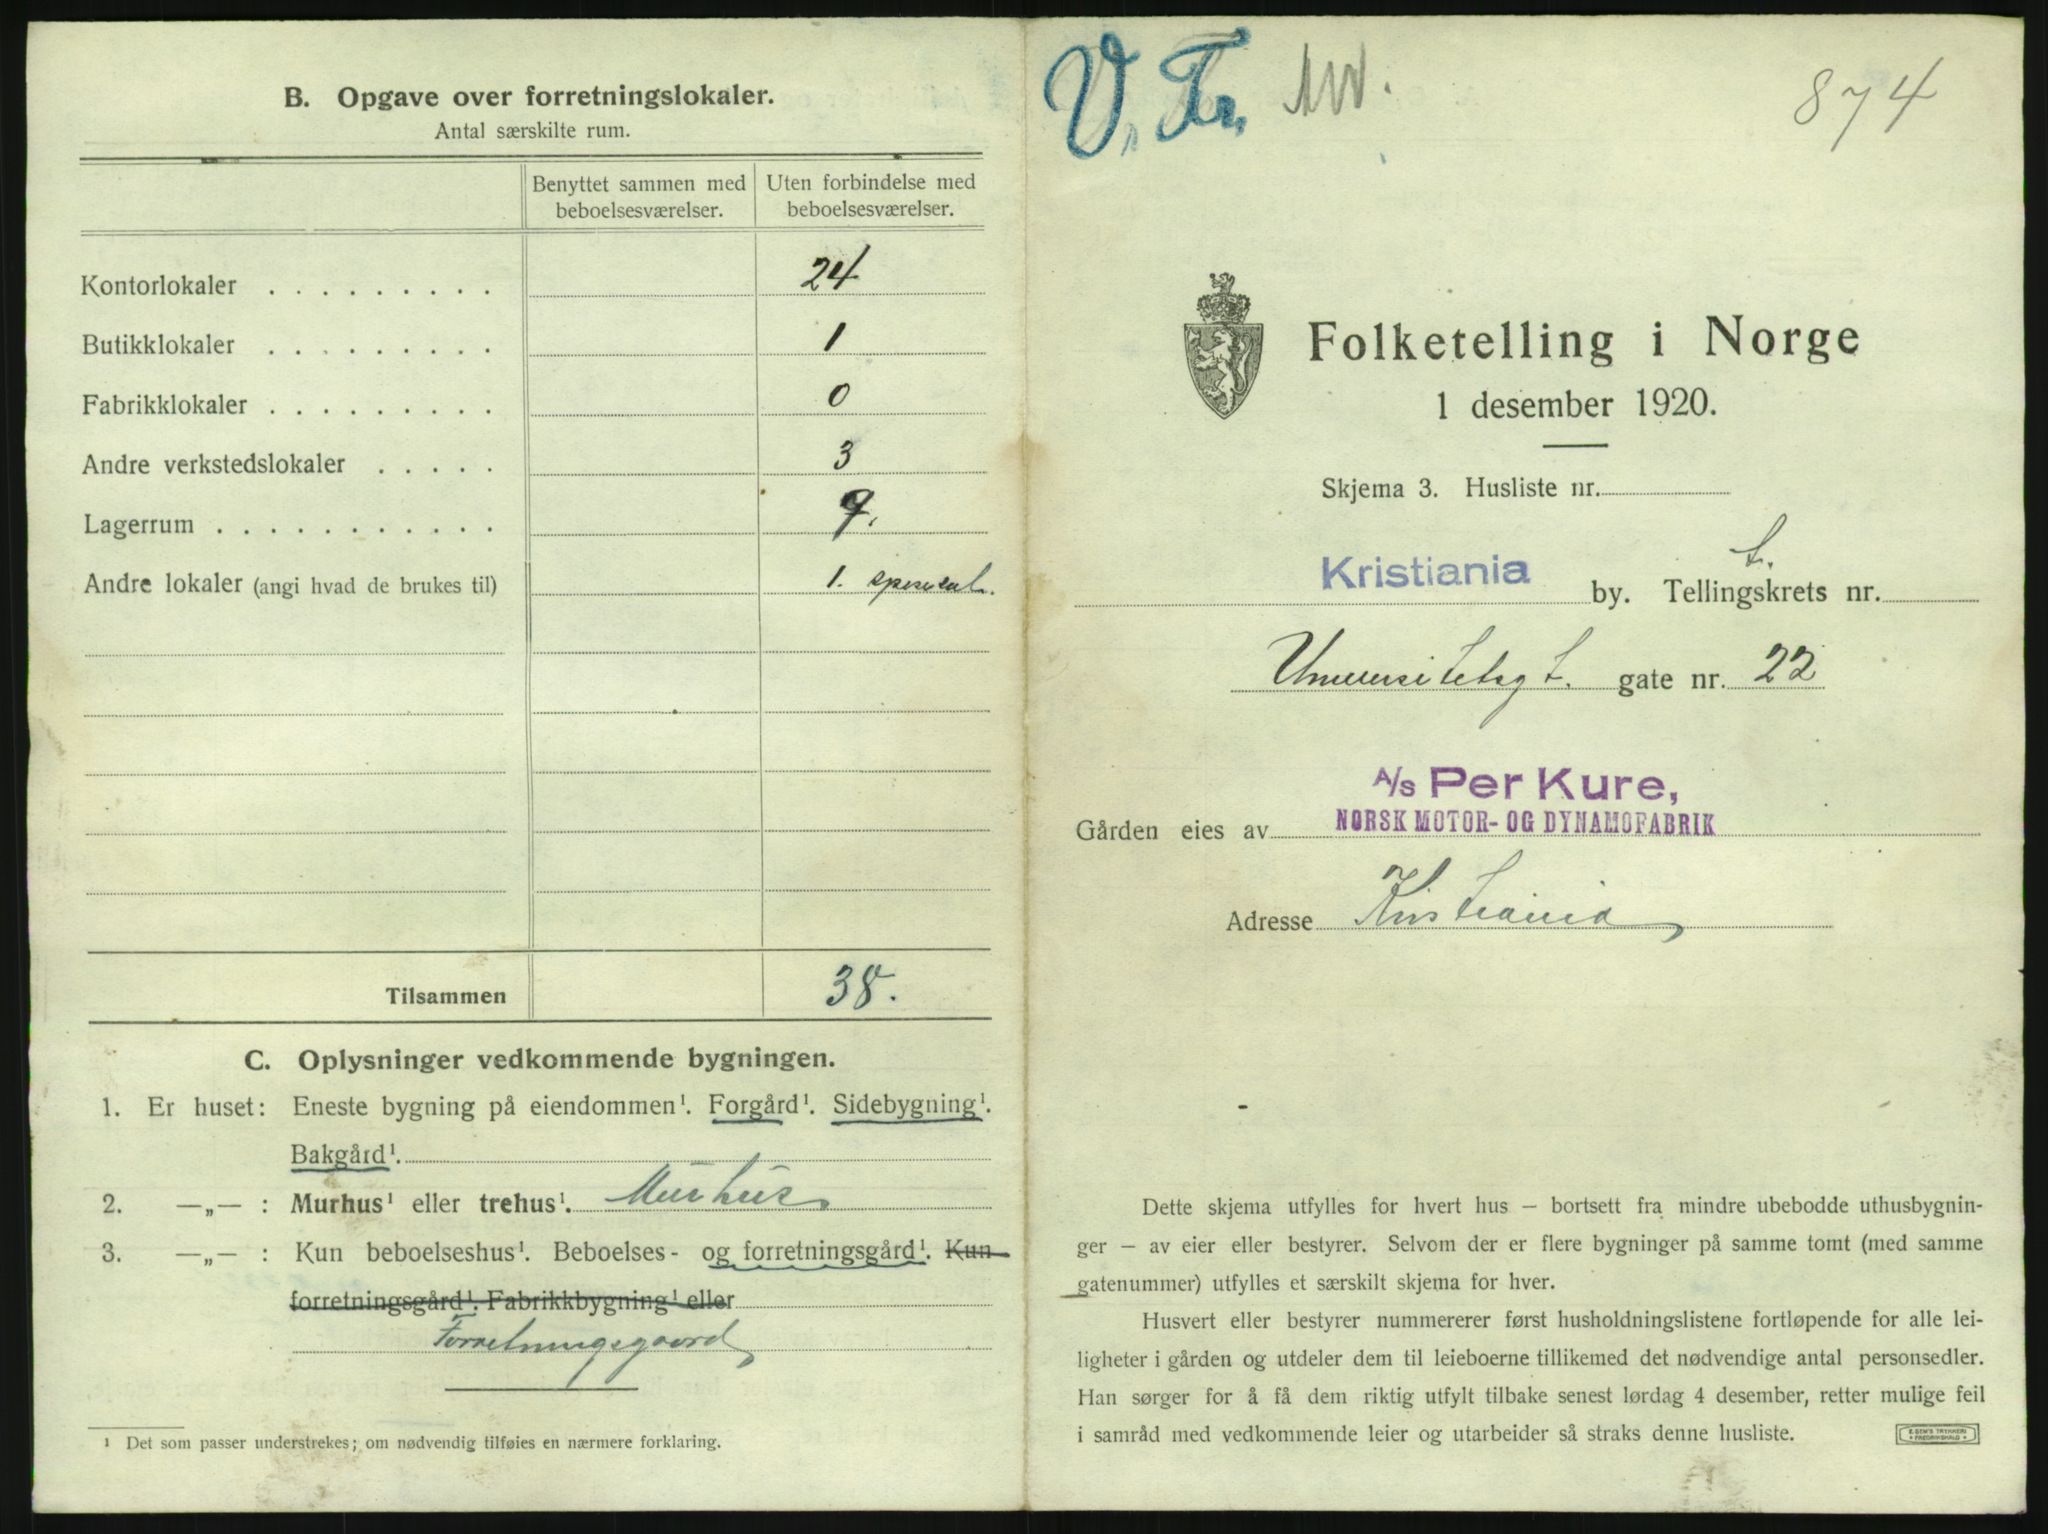 B. Opgave over forretningslokaler.
Antal særskilte rum.
Benyttet sammen med beboelsesværelser.
Uten forbindelse med beboelsesværelser.
Kontorlokaler . . . . . . . . . 24
Butikklokaler . . . . . . . . . 1
Fabrikklokaler . . . . . . . . . 0
Andre verkstedslokaler . . . . . 3
Lagerrum . . . . . . . . . . . 9.
Andre lokaler (angi hvad de brukes til) 1.
Tilsammen 38.
C. Oplysninger vedkommende bygningen.
1. Er huset: Eneste bygning på eiendommen¹. Forgård¹. Sidebygning¹.
Bakgård¹.
2. —„— : Murhus¹ eller trehus¹. Murhus
3. —„— : Kun beboelseshus¹. Beboelses- og forretningsgård¹. Kun
forretningsgård¹. Fabrikkbygning¹ eller
Forretningsgaard
¹ Det som passer understrekes; om nødvendig tilføies en nærmere forklaring.
V. Fr.
874
Folketelling i Norge
1 desember 1920.
Skjema 3. Husliste nr.
Kristiania by. Tellingskrets nr.
Universitetsgt. gate nr. 22
A/S Per Kure,
NORSK MOTOR- OG DYNAMOFABRIK
Gården eies av
Adresse Kristiania
Dette skjema utfylles for hvert hus – bortsett fra mindre ubebodde uthusbygnin-
ger – av eier eller bestyrer. Selvom der er flere bygninger på samme tomt (med samme
gatenummer) utfylles et særskilt skjema for hver.
Husvert eller bestyrer nummererer først husholdningslistene fortløpende for alle lei-
ligheter i gården og utdeler dem til leieboerne tillikemed det nødvendige antal personsedler.
Han sørger for å få dem riktig utfylt tilbake senest lørdag 4 desember, retter mulige feil
i samråd med vedkommende leier og utarbeider så straks denne husliste.
E. SEM'S TRYKKERI
FREDRIKSHALD